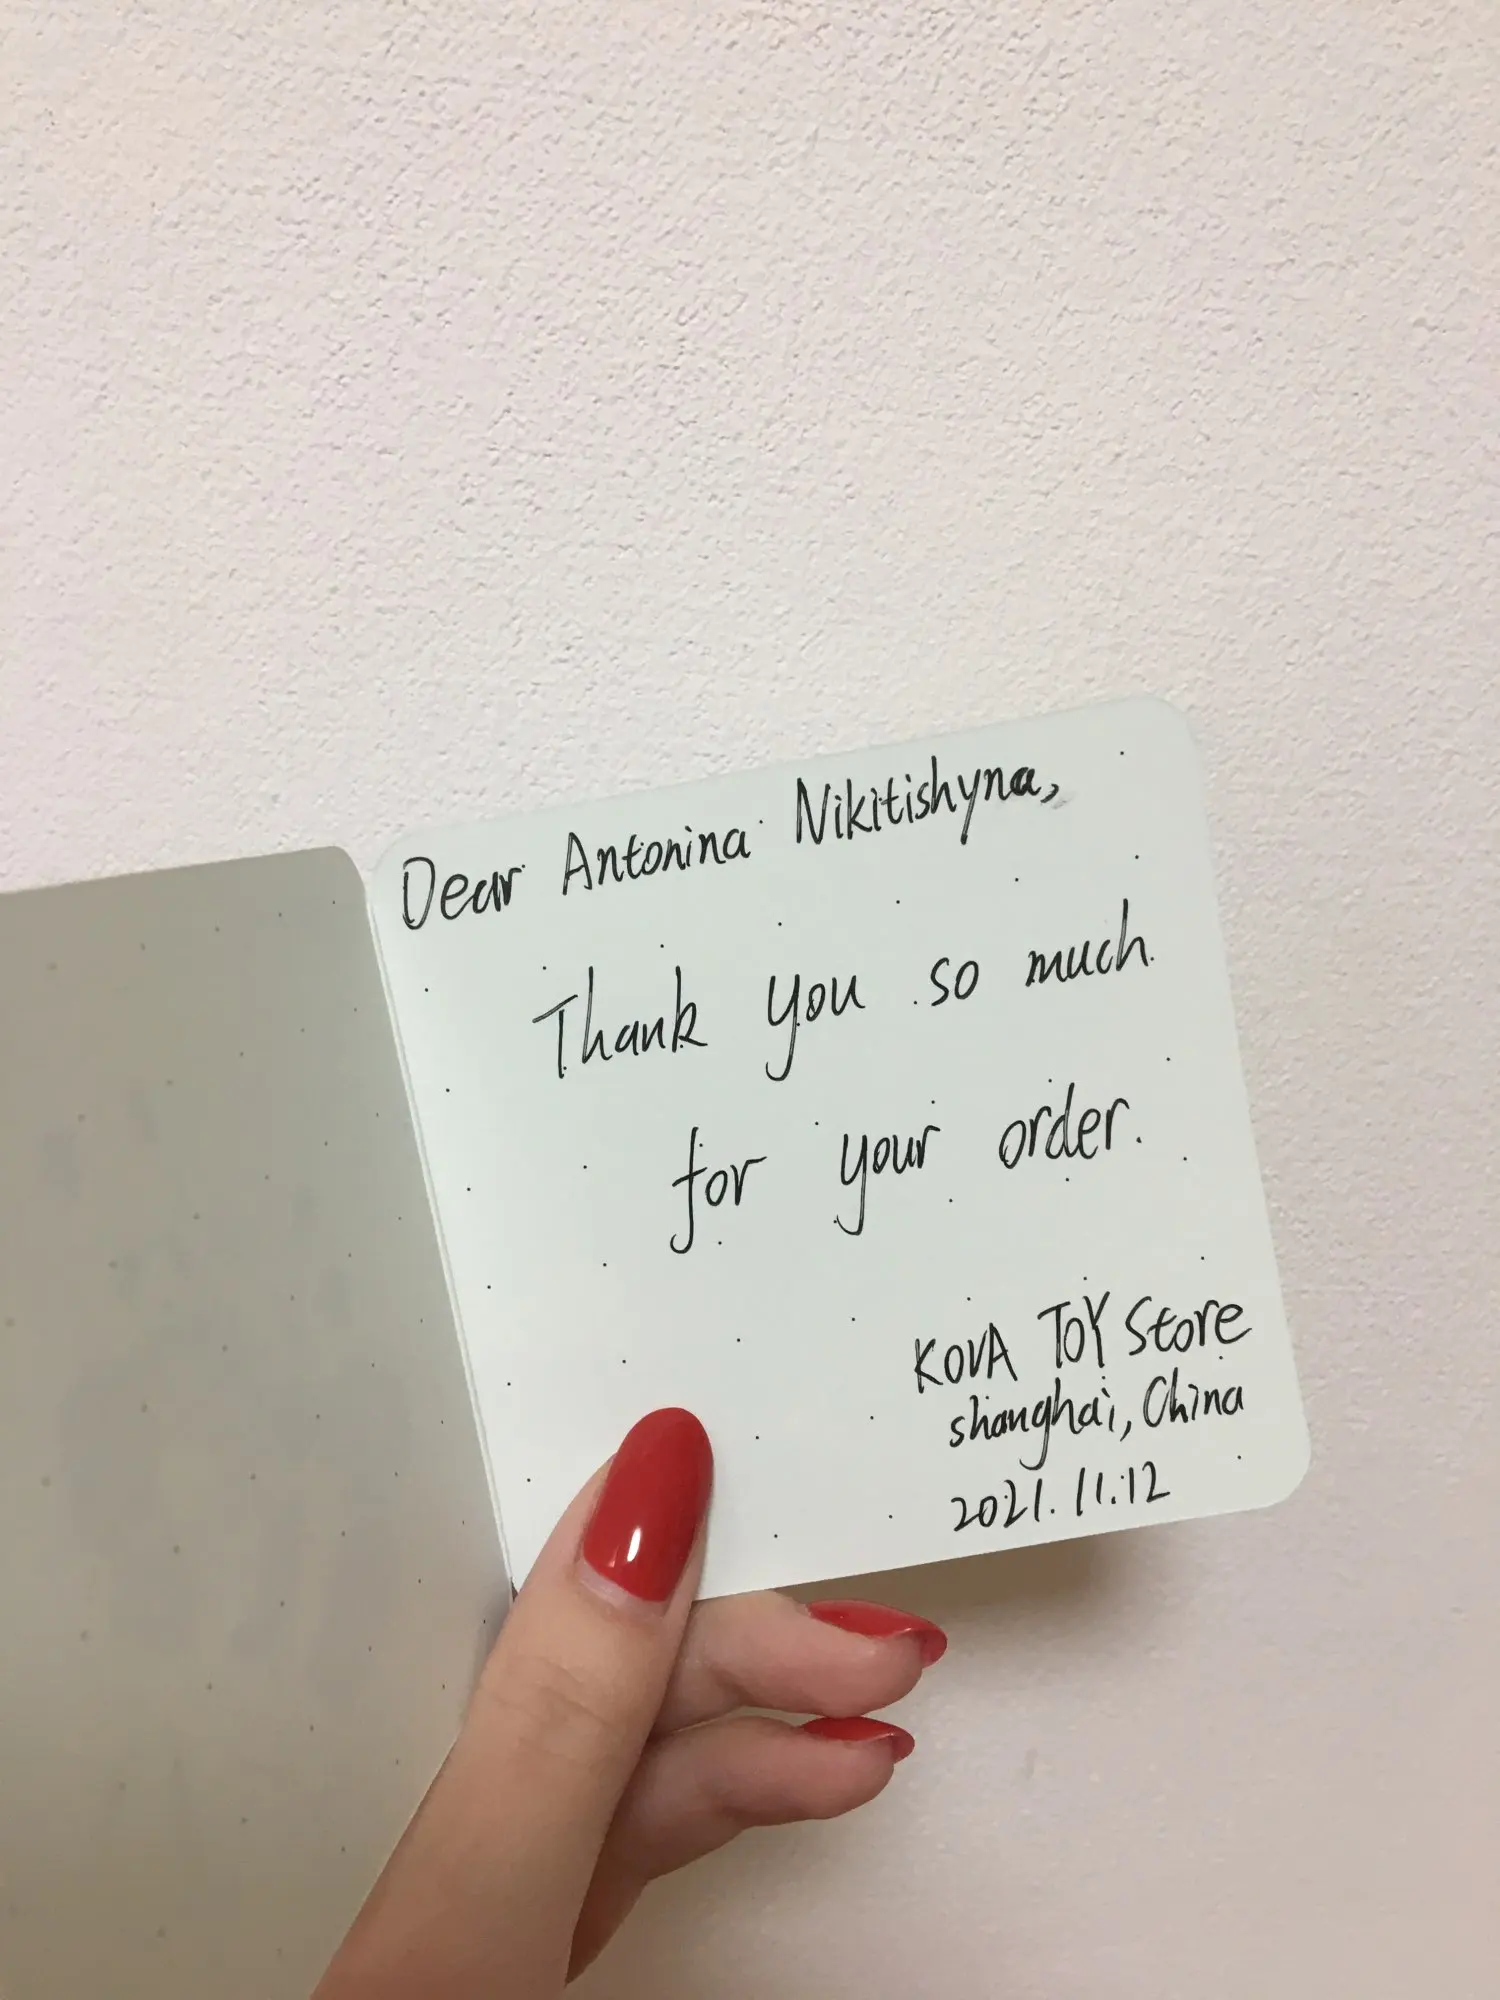 Dear Antonina Nikitishyna,
Thank you so much
for your order.
KOVA TOY Store
shanghai, China
2021.11.12